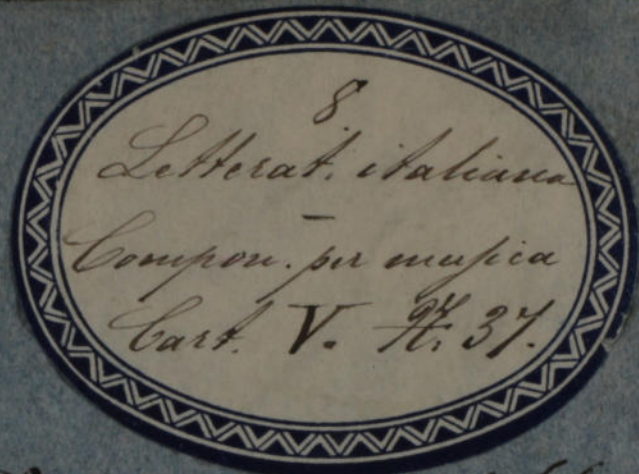 8
Letterat. italiana
–
Compon. per musica
Cart. V. N. 37.